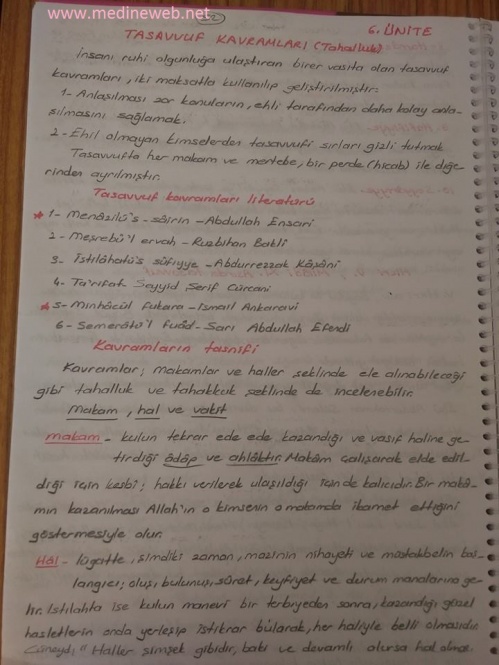 www.medineweb.net
6. ÜNİTE
TASAVVUF KAVRAMLARI (Tahalluk)
İnsanı ruhi olgunluğa ulaştıran birer vasıta olan tasavvuf
kavramları, iki maksatla kullanılıp geliştirilmiştir:
1- Anlaşılması zor konuların, ehli tarafından daha kolay anla-
şılmasını sağlamak.
2- Ehil olmayan kimselerden tasavvufi sırları gizli tutmak
Tasavvufta her makam ve mertebe, bir perde (hicab) ile diğe-
rinden ayrılmıştır.
Tasavvuf kavramları literatürü
* 1- Menâzilü's-sâirin - Abdullah Ensari
2- Meşrebü'l ervah - Ruzbihan Bakli
3- Istılâhatü's sûfiyye - Abdurrezzak Kâşâni
4- Ta'rifat Seyyid Şerif Cürcani
* 5- Minhâcül fukara - İsmail Ankaravi
6- Semerâtü'l fuâd - Sarı Abdullah Efendi
Kavramların tasnifi
Kavramlar; makamlar ve haller şeklinde ele alınabileceği
gibi tahalluk ve tahakkuk şeklinde de incelenebilir.
Makam, hal ve vakit
makam - kulun tekrar ede ede kazandığı ve vasıf haline ge-
tirdiği âdâp ve ahlâktır. Makâm çalışarak elde edil-
diği için kesbî; hakkı verilerek ulaşıldığı için de kalıcıdır. Bir makâ-
mın kazanılması Allah'ın o kimsenin o makamda ikamet ettiğini
göstermesiyle olur.
Hâl - lügatte, şimdiki zaman, mazinin nihayeti ve müstakbelin baş-
langıcı; oluş, bulunuş, sûret, keyfiyet ve durum manalarına ge-
lir. Istılahta ise kulun manevi bir terbiyeden sonra, kazandığı güzel
hasletlerin onda yerleşip istikrar bularak, her haliyle belli olmasıdır.
Cüneyd, " Haller şimşek gibidir, baki ve devamlı olursa hal olmaz.